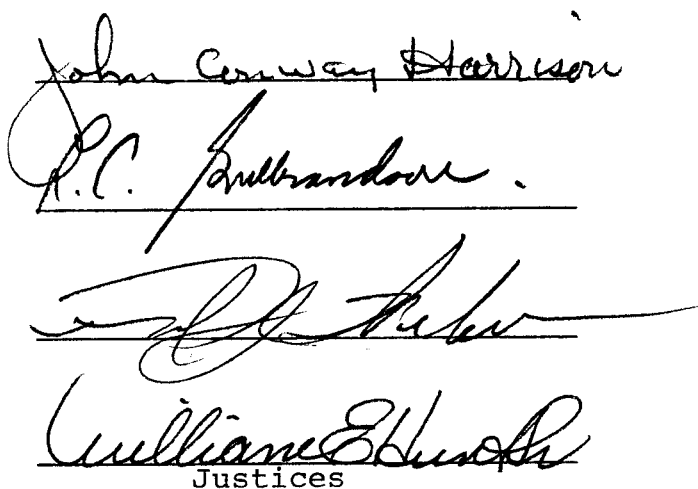 John Conway Harrison
L.C. Gulbrandson.
William E Hunt Sr
Justices